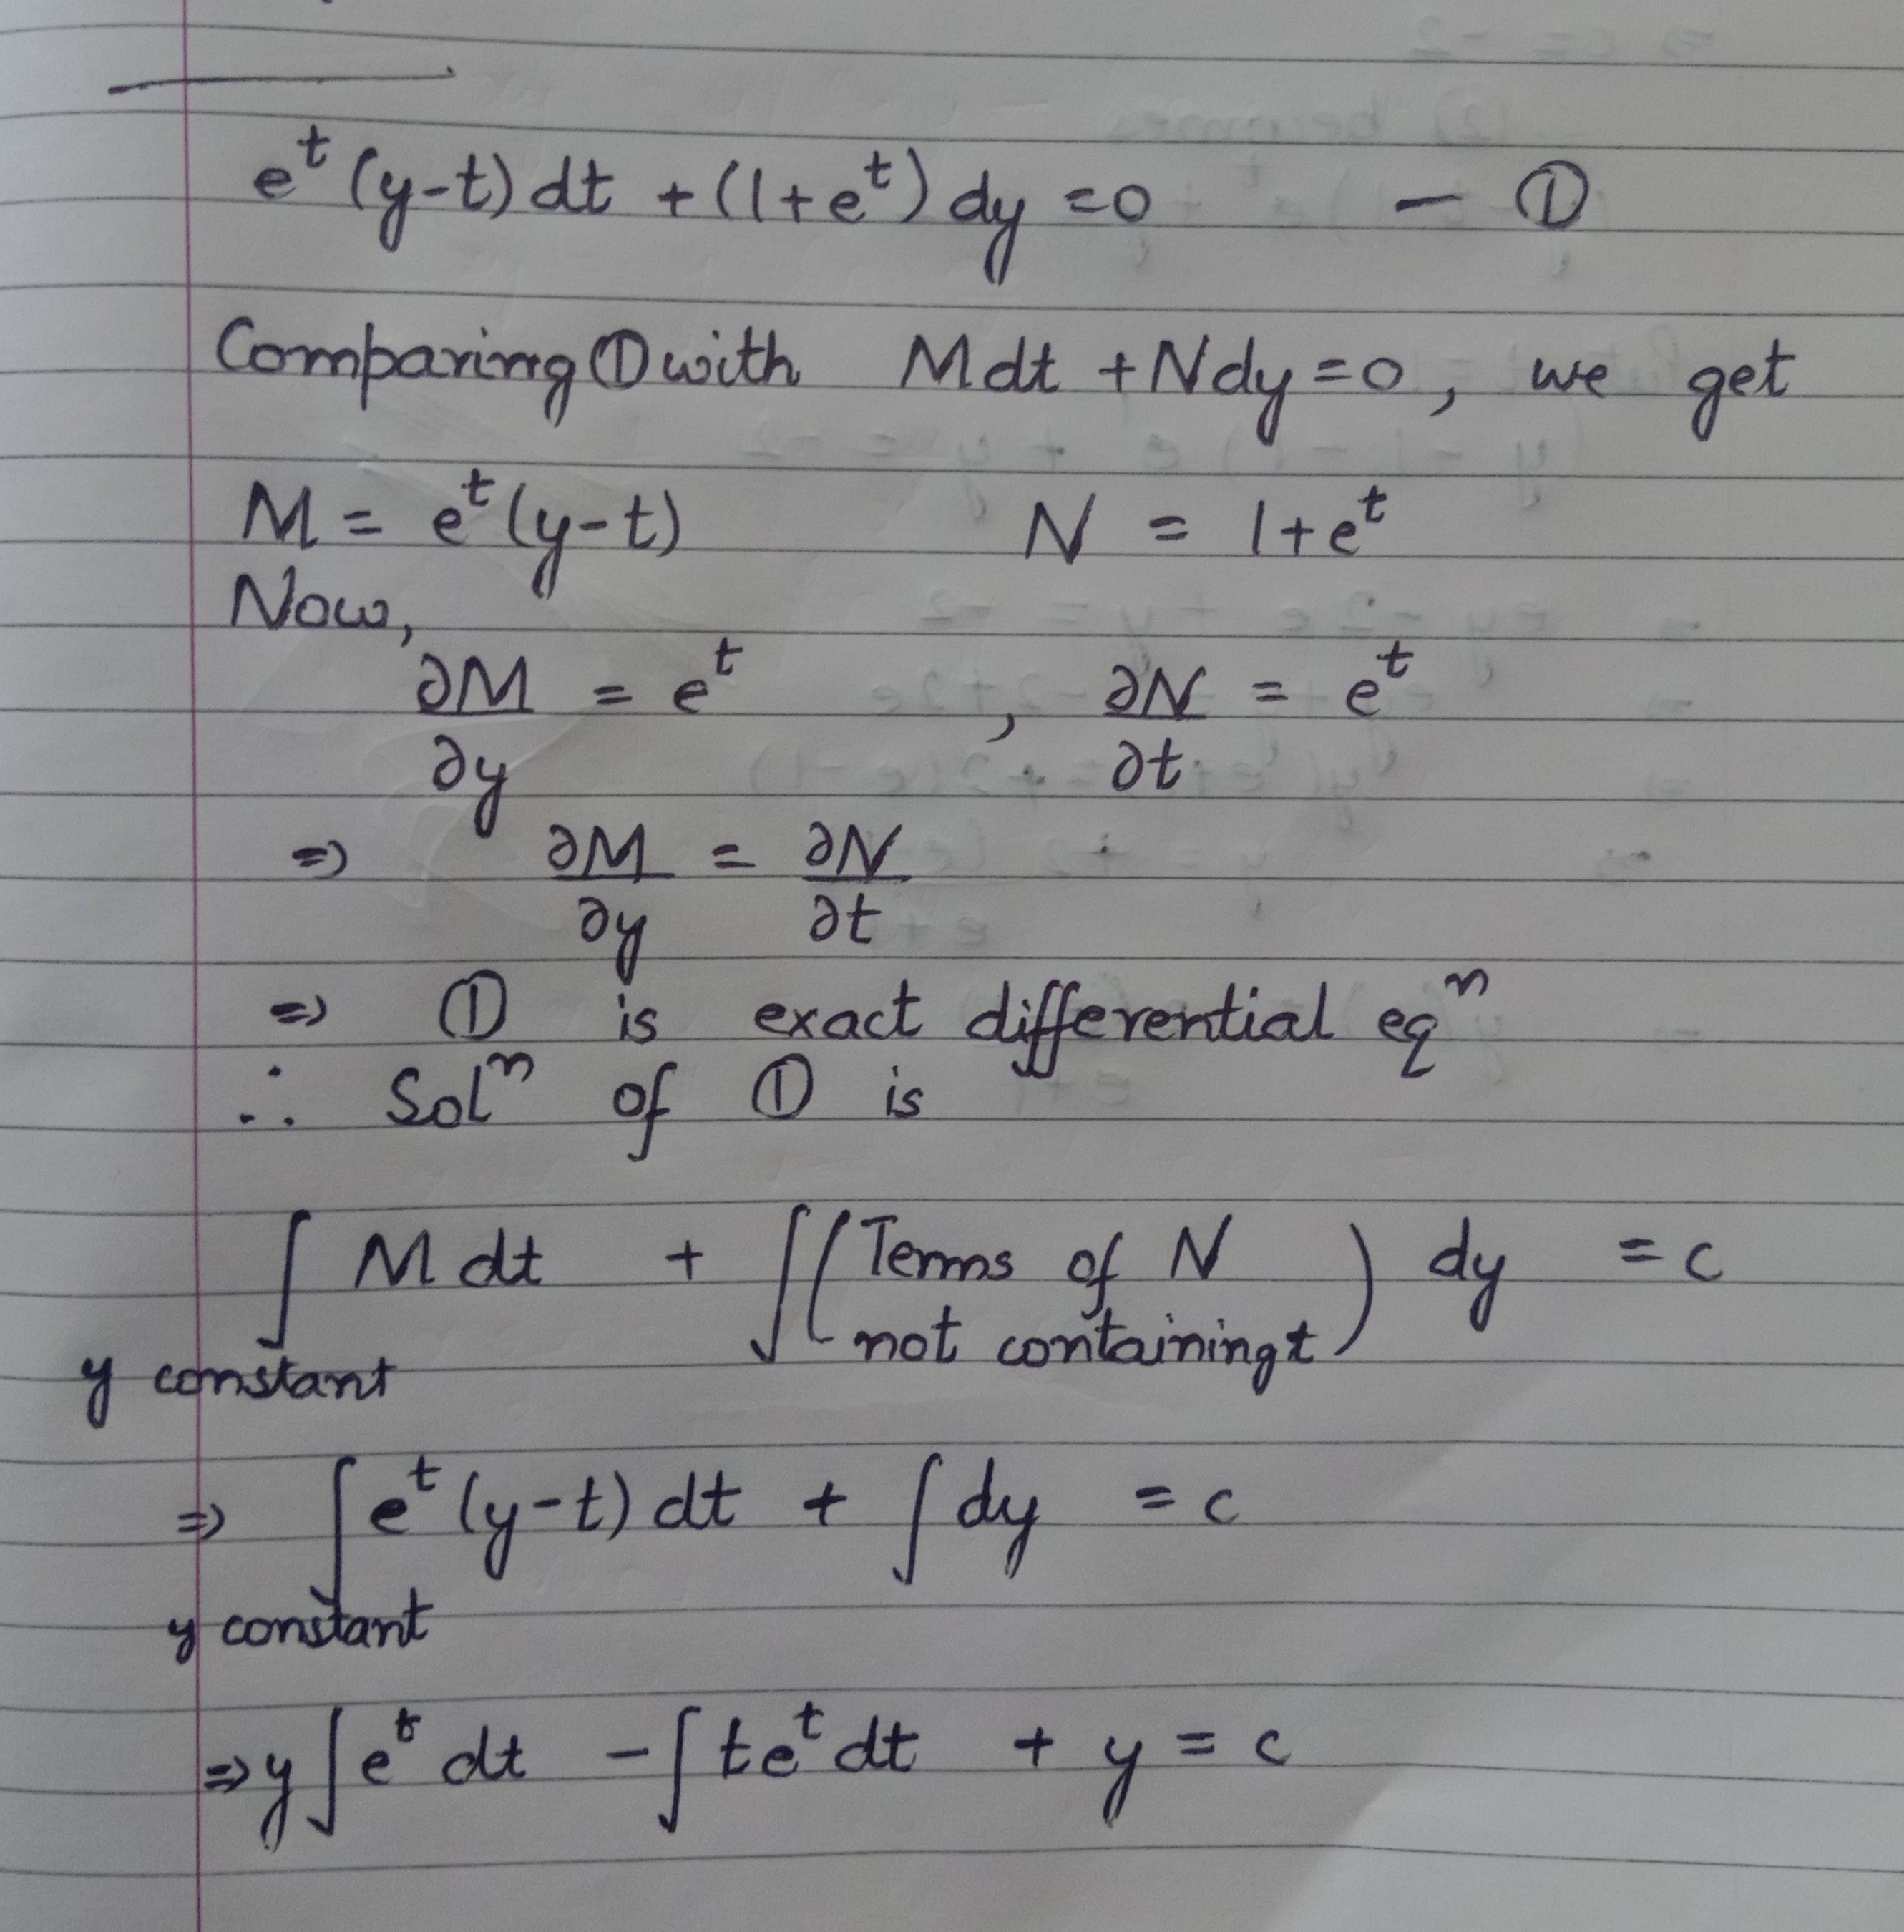 e^t (y-t) dt + (1+e^t) dy =0 — ①
Comparing ① with M dt + N dy = 0, we get
M = e^t (y-t) N = 1+e^t
Now,
∂M/∂y = e^t , ∂N/∂t = e^t
⇒ ∂M/∂y = ∂N/∂t
⇒ ① is exact differential eq^n
∴ Sol^n of ① is
∫ M dt + ∫ (Terms of N not containing t) dy = c
y constant
⇒ ∫ e^t (y-t) dt + ∫ dy = c
y constant
⇒ y ∫ e^t dt - ∫ t e^t dt + y = c